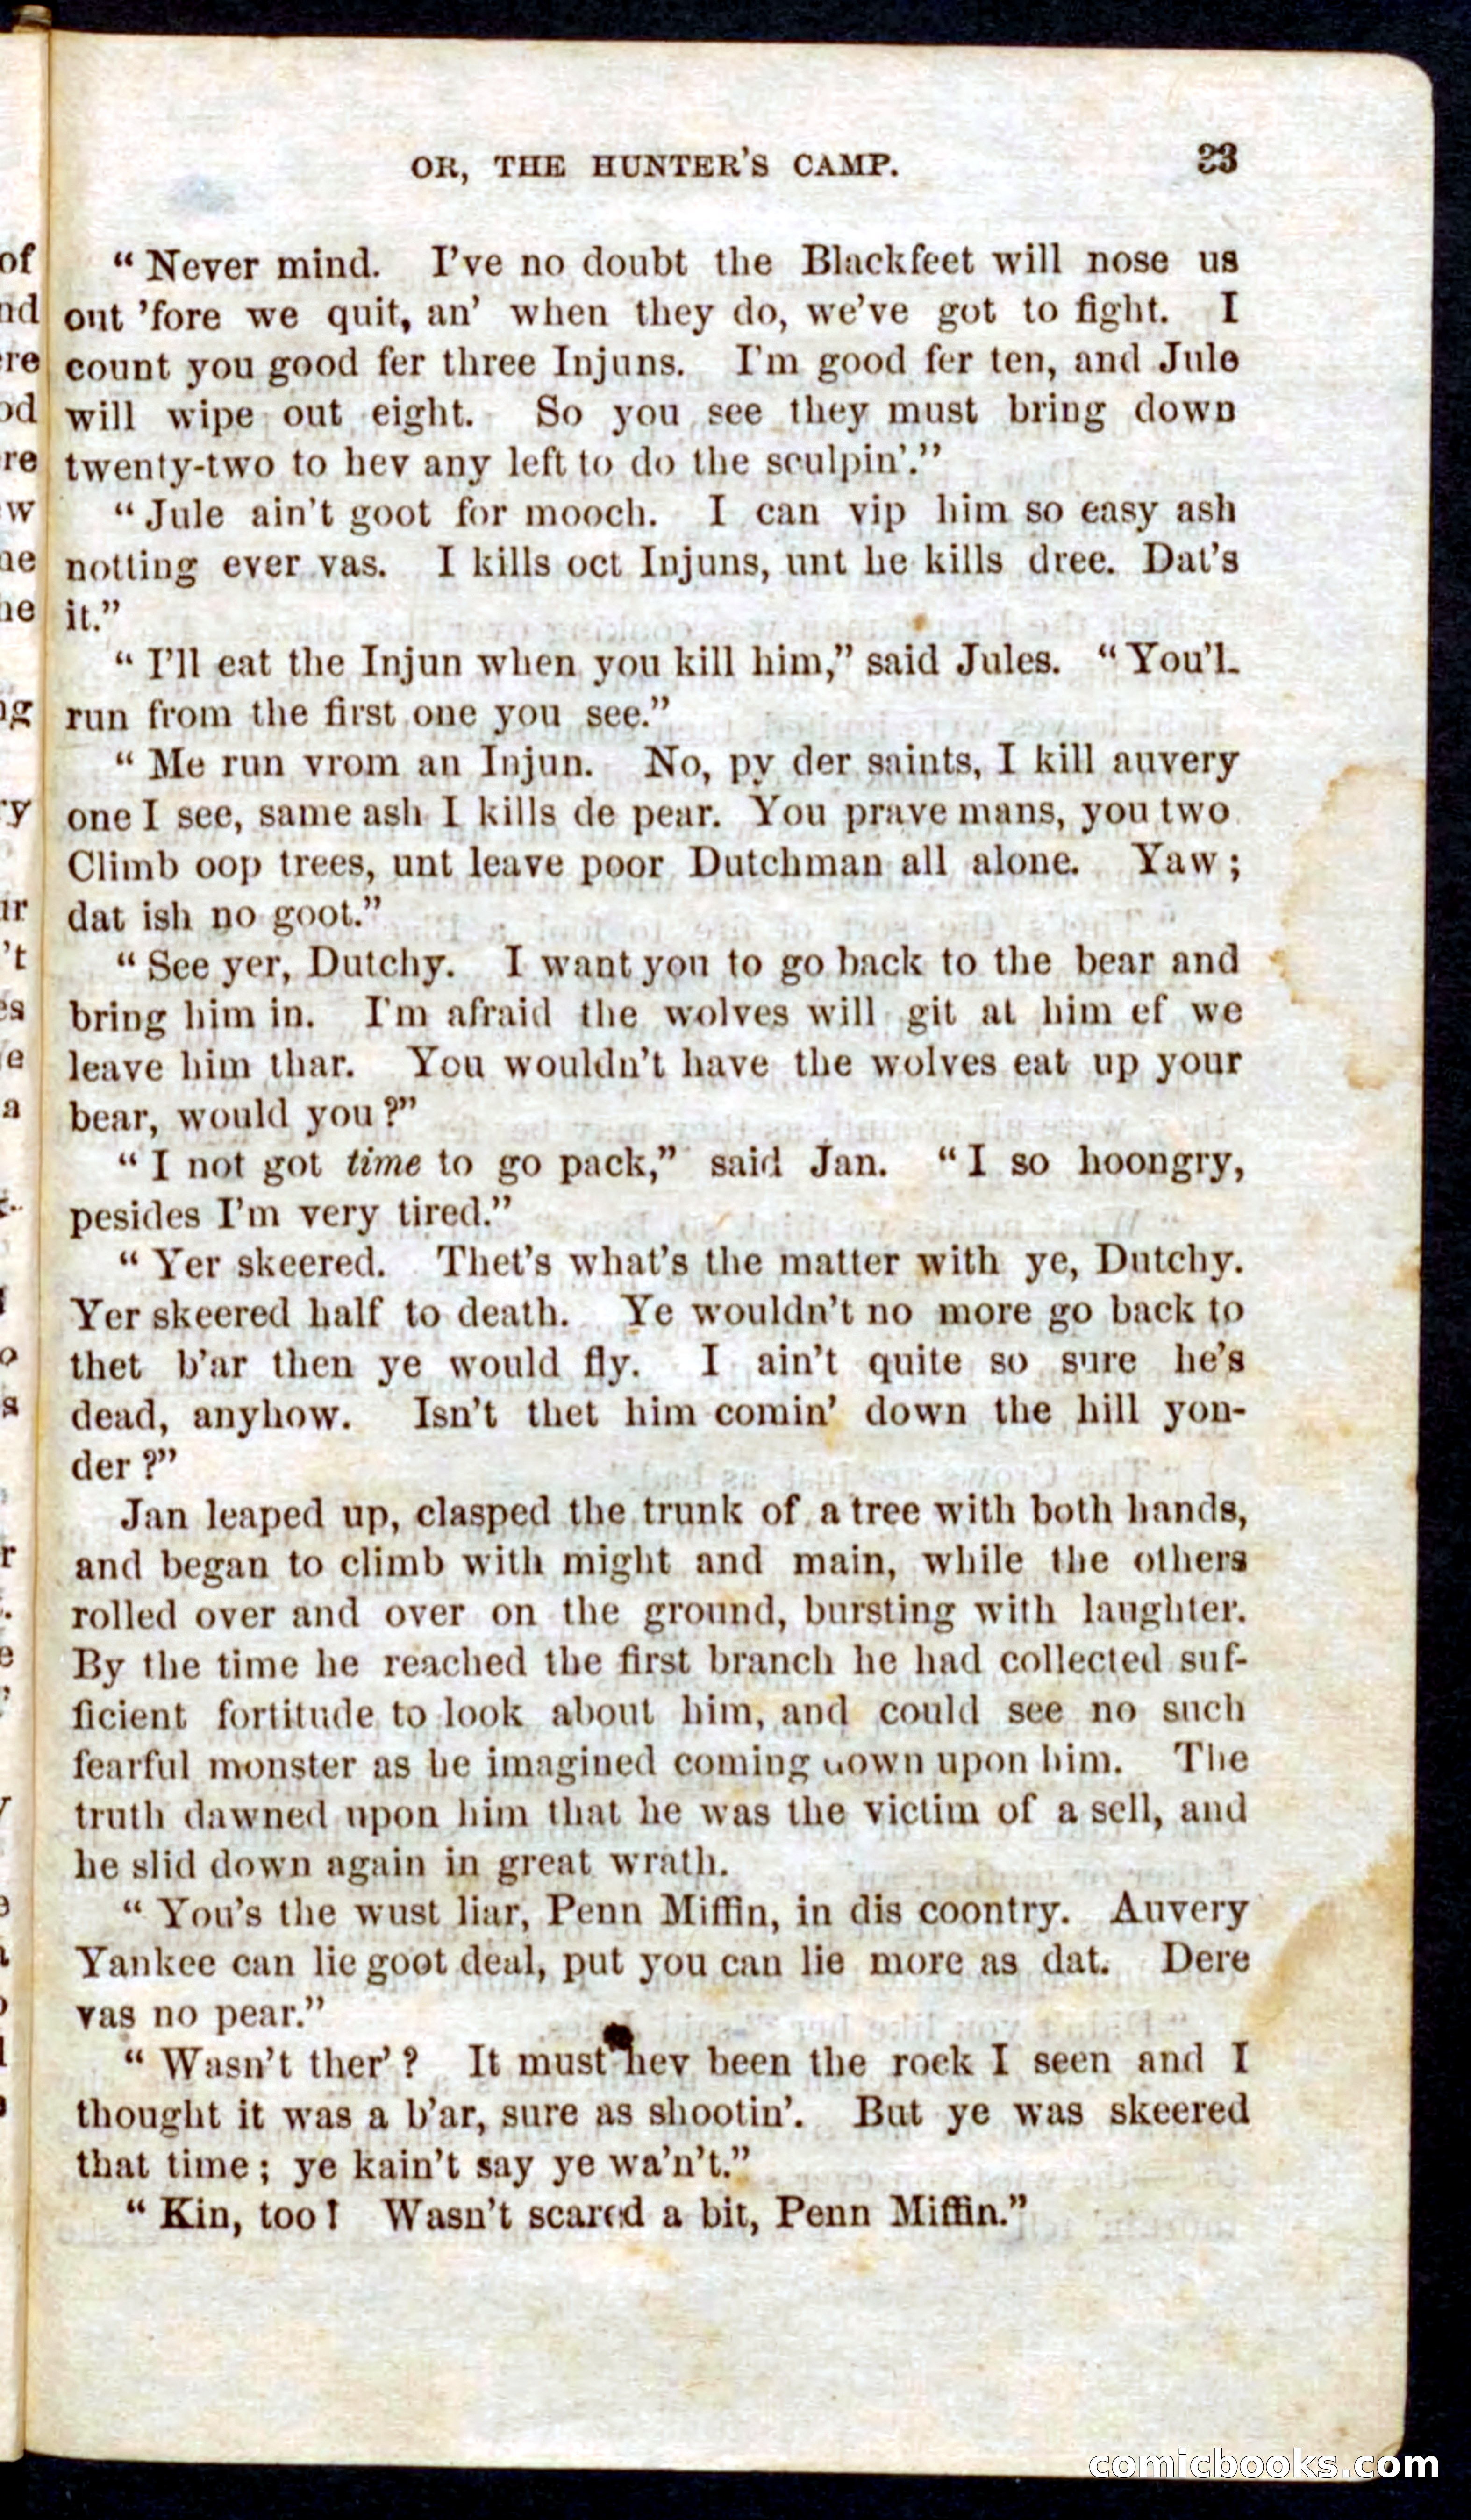 OR, THE HUNTER'S CAMP. 23
“Never mind. I've no doubt the Blackfeet will nose us
out 'fore we quit, an' when they do, we've got to fight. I
count you good fer three Injuns. I'm good fer ten, and Jule
will wipe out eight. So you see they must bring down
twenty-two to hev any left to do the sculpin'.”
“Jule ain't goot for mooch. I can vip him so easy ash
notting ever vas. I kills oct Injuns, unt he kills dree. Dat's
it.”
“I'll eat the Injun when you kill him,” said Jules. “You'l
run from the first one you see.”
“Me run vrom an Injun. No, py der saints, I kill auvery
one I see, same ash I kills de pear. You prave mans, you two
Climb oop trees, unt leave poor Dutchman all alone. Yaw;
dat ish no goot.”
“See yer, Dutchy. I want you to go back to the bear and
bring him in. I'm afraid the wolves will git at him ef we
leave him thar. You wouldn't have the wolves eat up your
bear, would you?”
“I not got time to go pack,” said Jan. “I so hoongry,
pesides I'm very tired.”
“Yer skeered. Thet's what's the matter with ye, Dutchy.
Yer skeered half to death. Ye wouldn't no more go back to
thet b'ar then ye would fly. I ain't quite so sure he's
dead, anyhow. Isn't thet him comin' down the hill yon-
der?”
Jan leaped up, clasped the trunk of a tree with both hands,
and began to climb with might and main, while the others
rolled over and over on the ground, bursting with laughter.
By the time he reached the first branch he had collected suf-
ficient fortitude to look about him, and could see no such
fearful monster as he imagined coming down upon him. The
truth dawned upon him that he was the victim of a sell, and
he slid down again in great wrath.
“You's the wust liar, Penn Miffin, in dis coontry. Auvery
Yankee can lie goot deal, put you can lie more as dat. Dere
vas no pear.”
“Wasn't ther'? It must hev been the rock I seen and I
thought it was a b'ar, sure as shootin'. But ye was skeered
that time; ye kain't say ye wa'n't.”
“Kin, too! Wasn't scared a bit, Penn Miffin.”
comicbooks.com